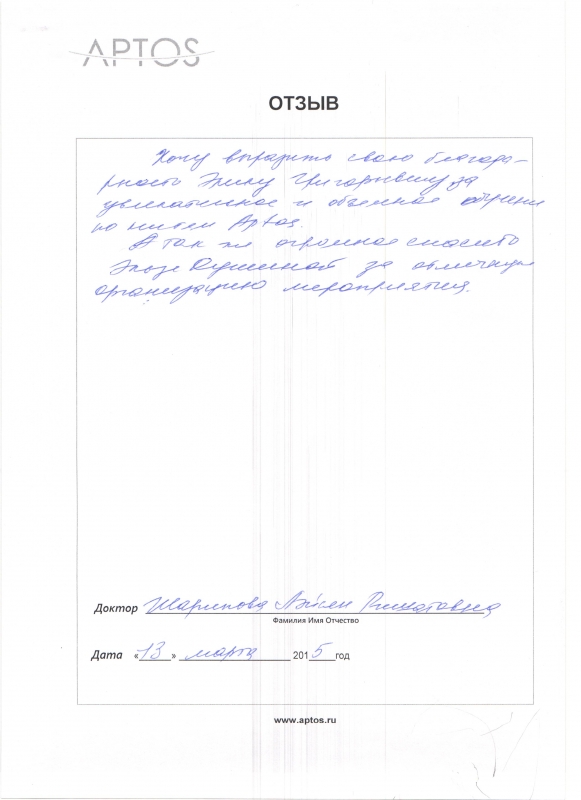 APTOS
ОТЗЫВ
Хочу выразить свою благода-
рность Эрику Григорьевичу за
увлекательное и объемное обучение
по нитям Aptos.
А так же огромное спасибо
за отличную
организацию мероприятия.
Доктор Шарипова Ришатовна
Фамилия Имя Отчество
Дата «13» марта 2015 год
www.aptos.ru